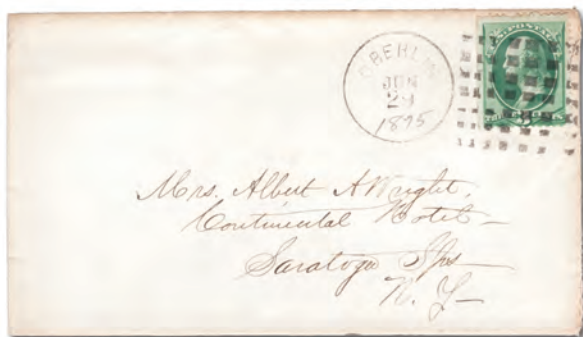 OBERLIN
JUN
29
1875
Mrs. Albert A Wright,
Continental Hotel
Saratoga Sps
N. Y